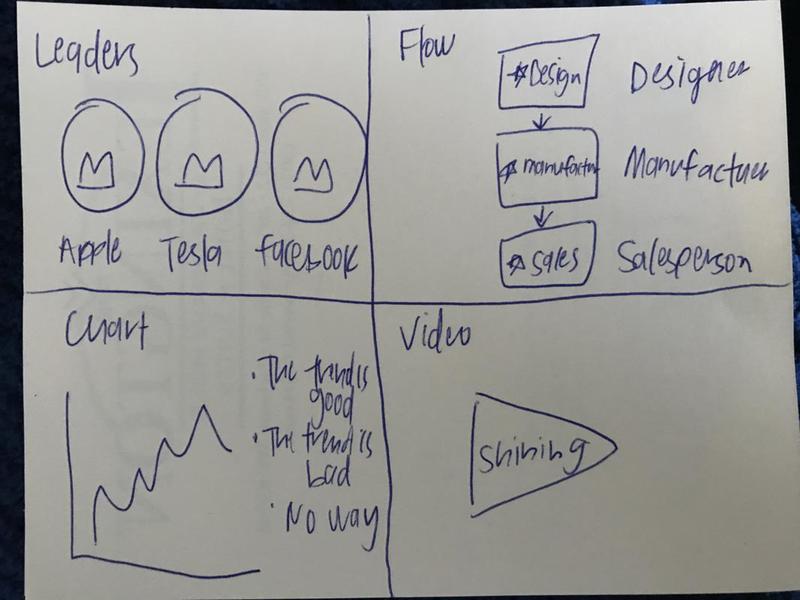 Leaders
Apple Tesla facebook
Flow
*Design Designer
*manufactur Manufactuer
*Sales Salesperson
Chart
• The trend is
good
• The trend is
bad
• No way
Video
Shining